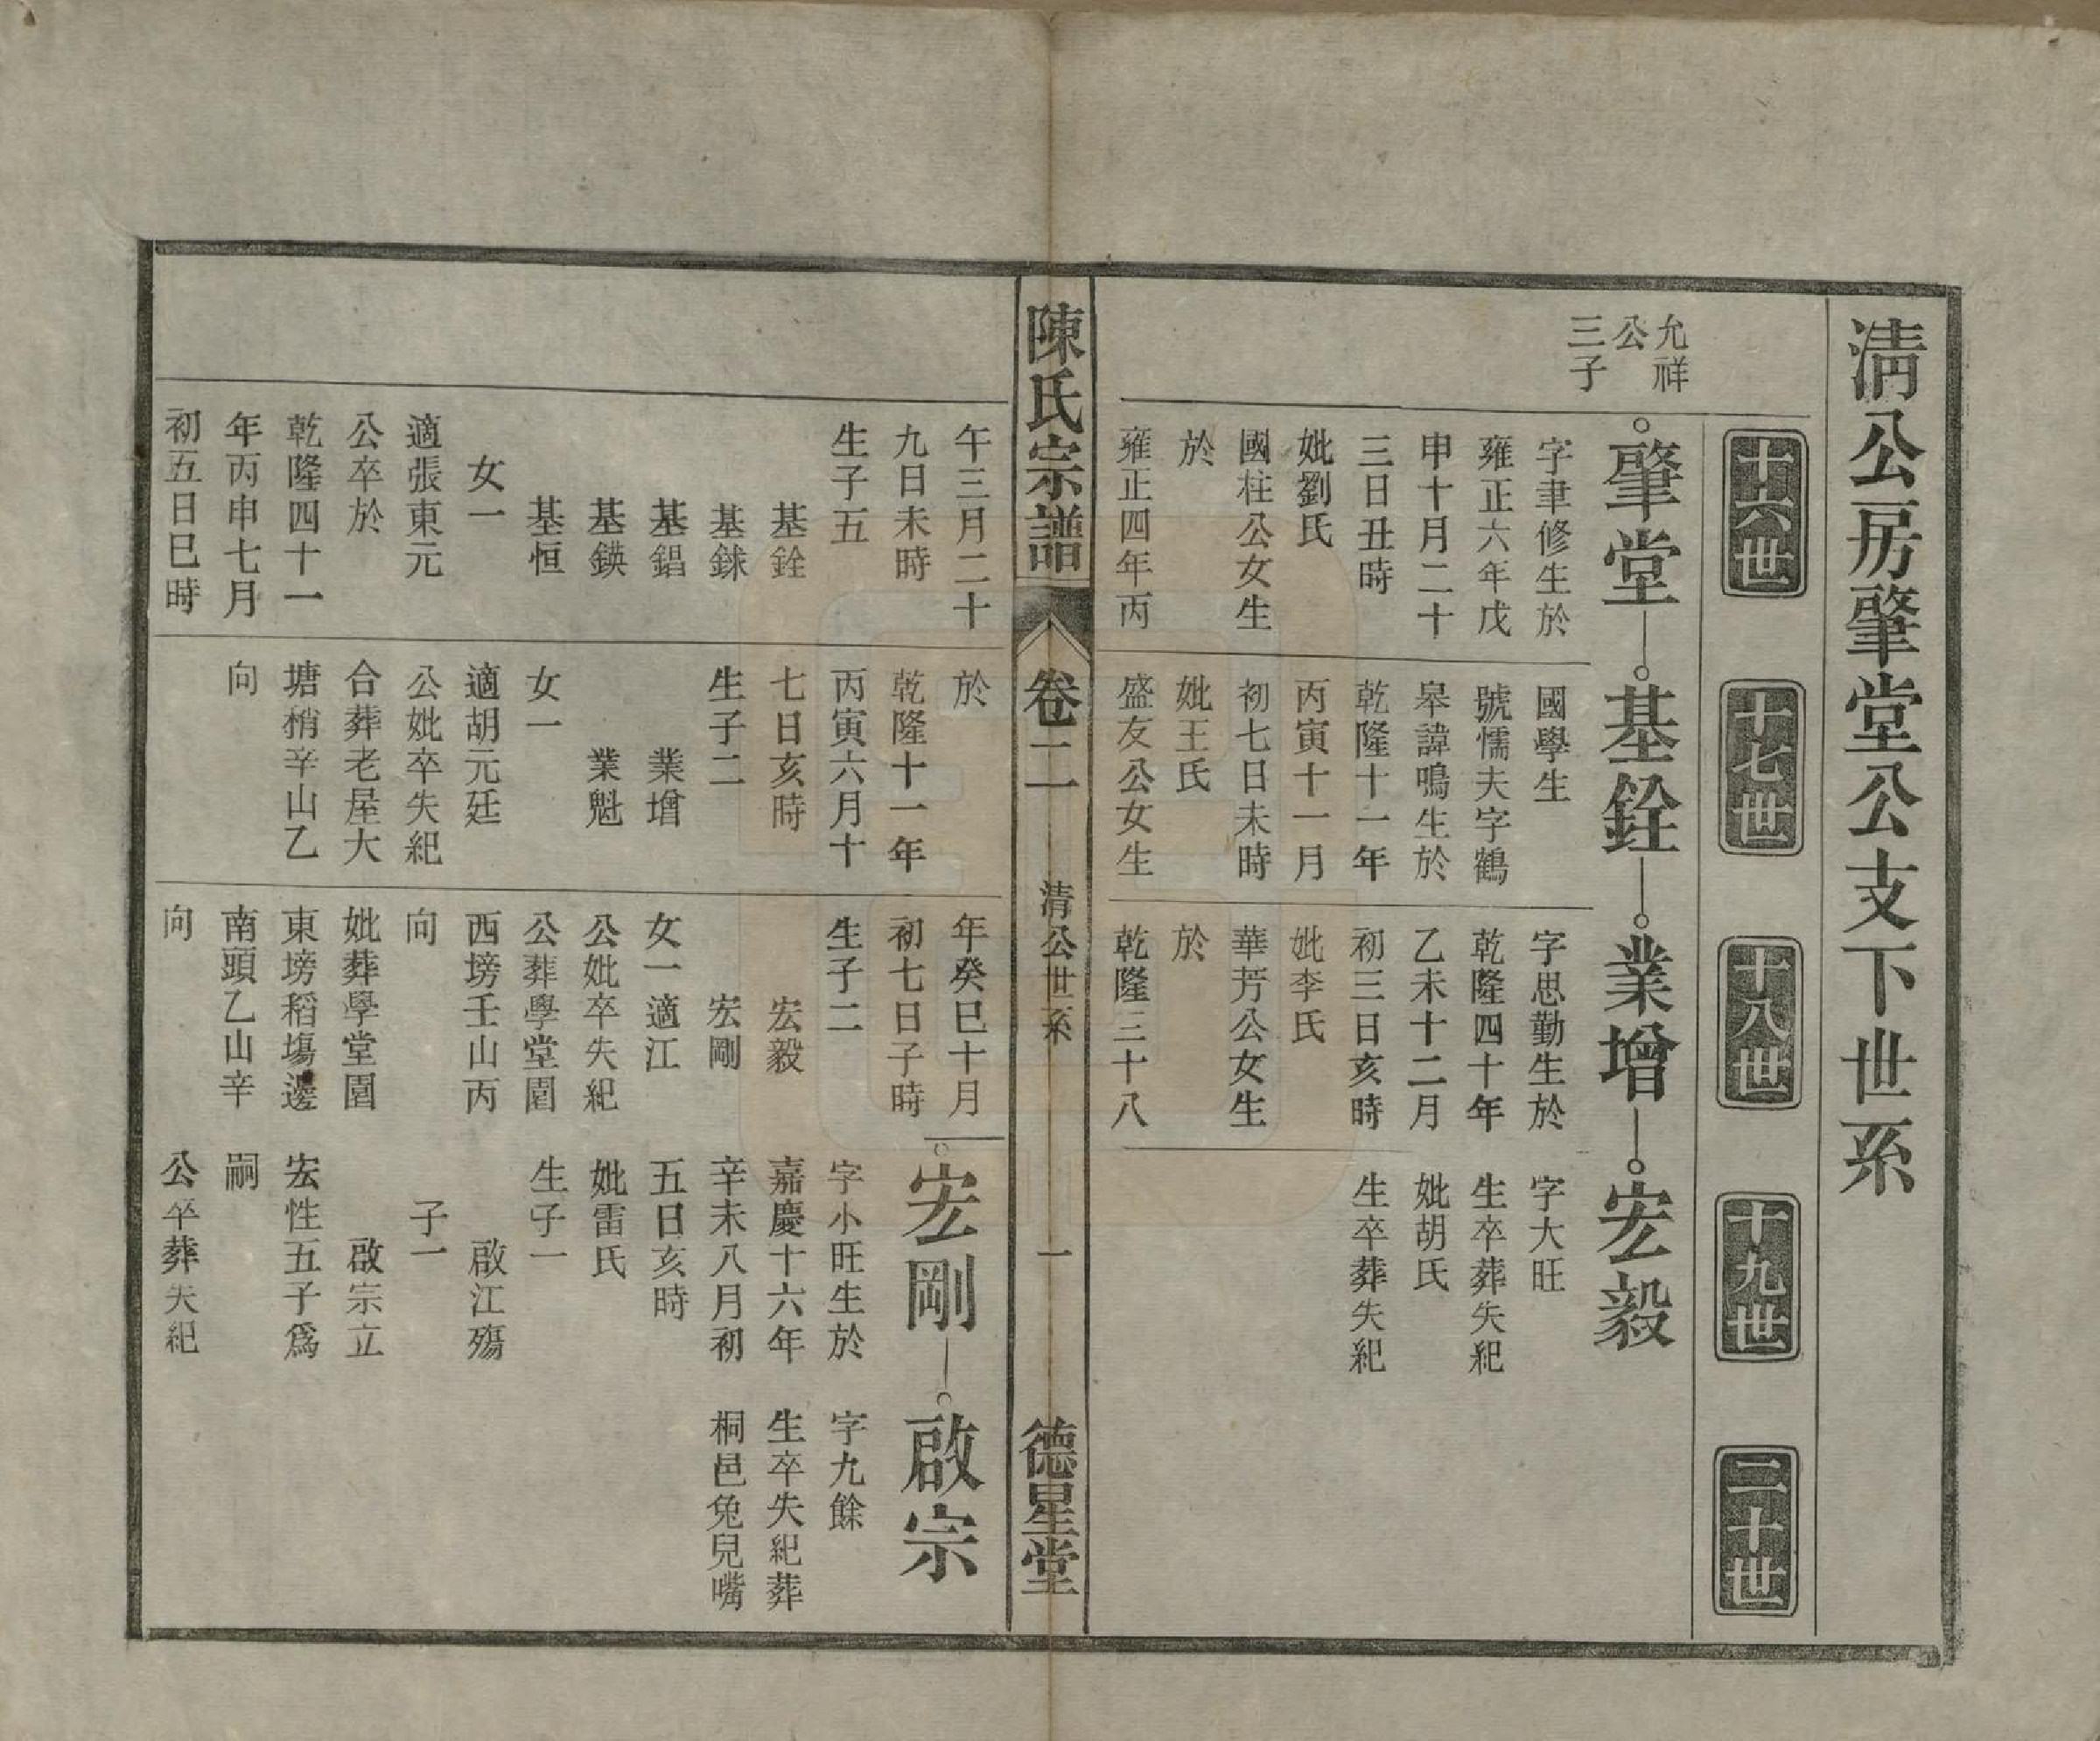 清公房肇堂公支下世系
十六世
十七世
十八世
十九世
二十世
允祥
公
三子
肇堂
字聿修生於
雍正六年戊
申十月二十
三日丑時
妣劉氏
國柱公女生
於
雍正四年丙
基銓
國學生
號懦夫字鶴
皋諱鳴生於
乾隆十一年
丙寅十一月
初七日未時
妣王氏
盛友公女生
業增
字思勤生於
乾隆四十年
乙未十二月
初三日亥時
妣李氏
華芳公女生
於
乾隆三十八
宏毅
字大旺
生卒葬失紀
妣胡氏
生卒葬失紀
陳氏宗譜
卷二
清公世系
一
德星堂
午三月二十
九日未時
生子五
基銓
基銶
基錩
基鍈
基恒
女一
適張東元
公卒於
乾隆四十一
年丙申七月
初五日巳時
於
乾隆十一年
丙寅六月十
七日亥時
生子二
業增
業魁
女一
適胡元廷
公妣卒失紀
合葬老屋大
塘稍辛山乙
向
年癸巳十月
初七日子時
生子二
宏毅
宏剛
女一適江
公妣卒失紀
公葬學堂園
西塝壬山丙
向
妣葬學堂園
東塝稻塲邊
南頭乙山辛
向
宏剛
字小旺生於
嘉慶十六年
辛未八月初
五日亥時
妣雷氏
生子一
啟江殤
子一
啟宗立
宏性五子爲
嗣
公卒葬失紀
啟宗
字九餘
生卒失紀葬
桐邑兔兒嘴